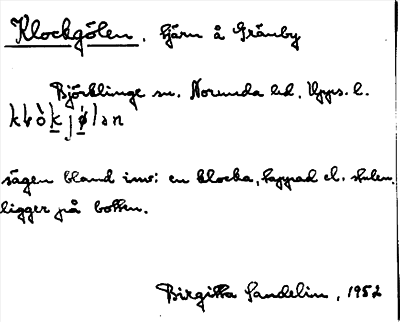 Klockgölen. tjärn å Gränby
Björklinge sn. Norunda hd. Upps. l.
sägen bland inv: en klocka, tappad el. stulen,
ligger på botten.
Birgitta Sandelin, 1952